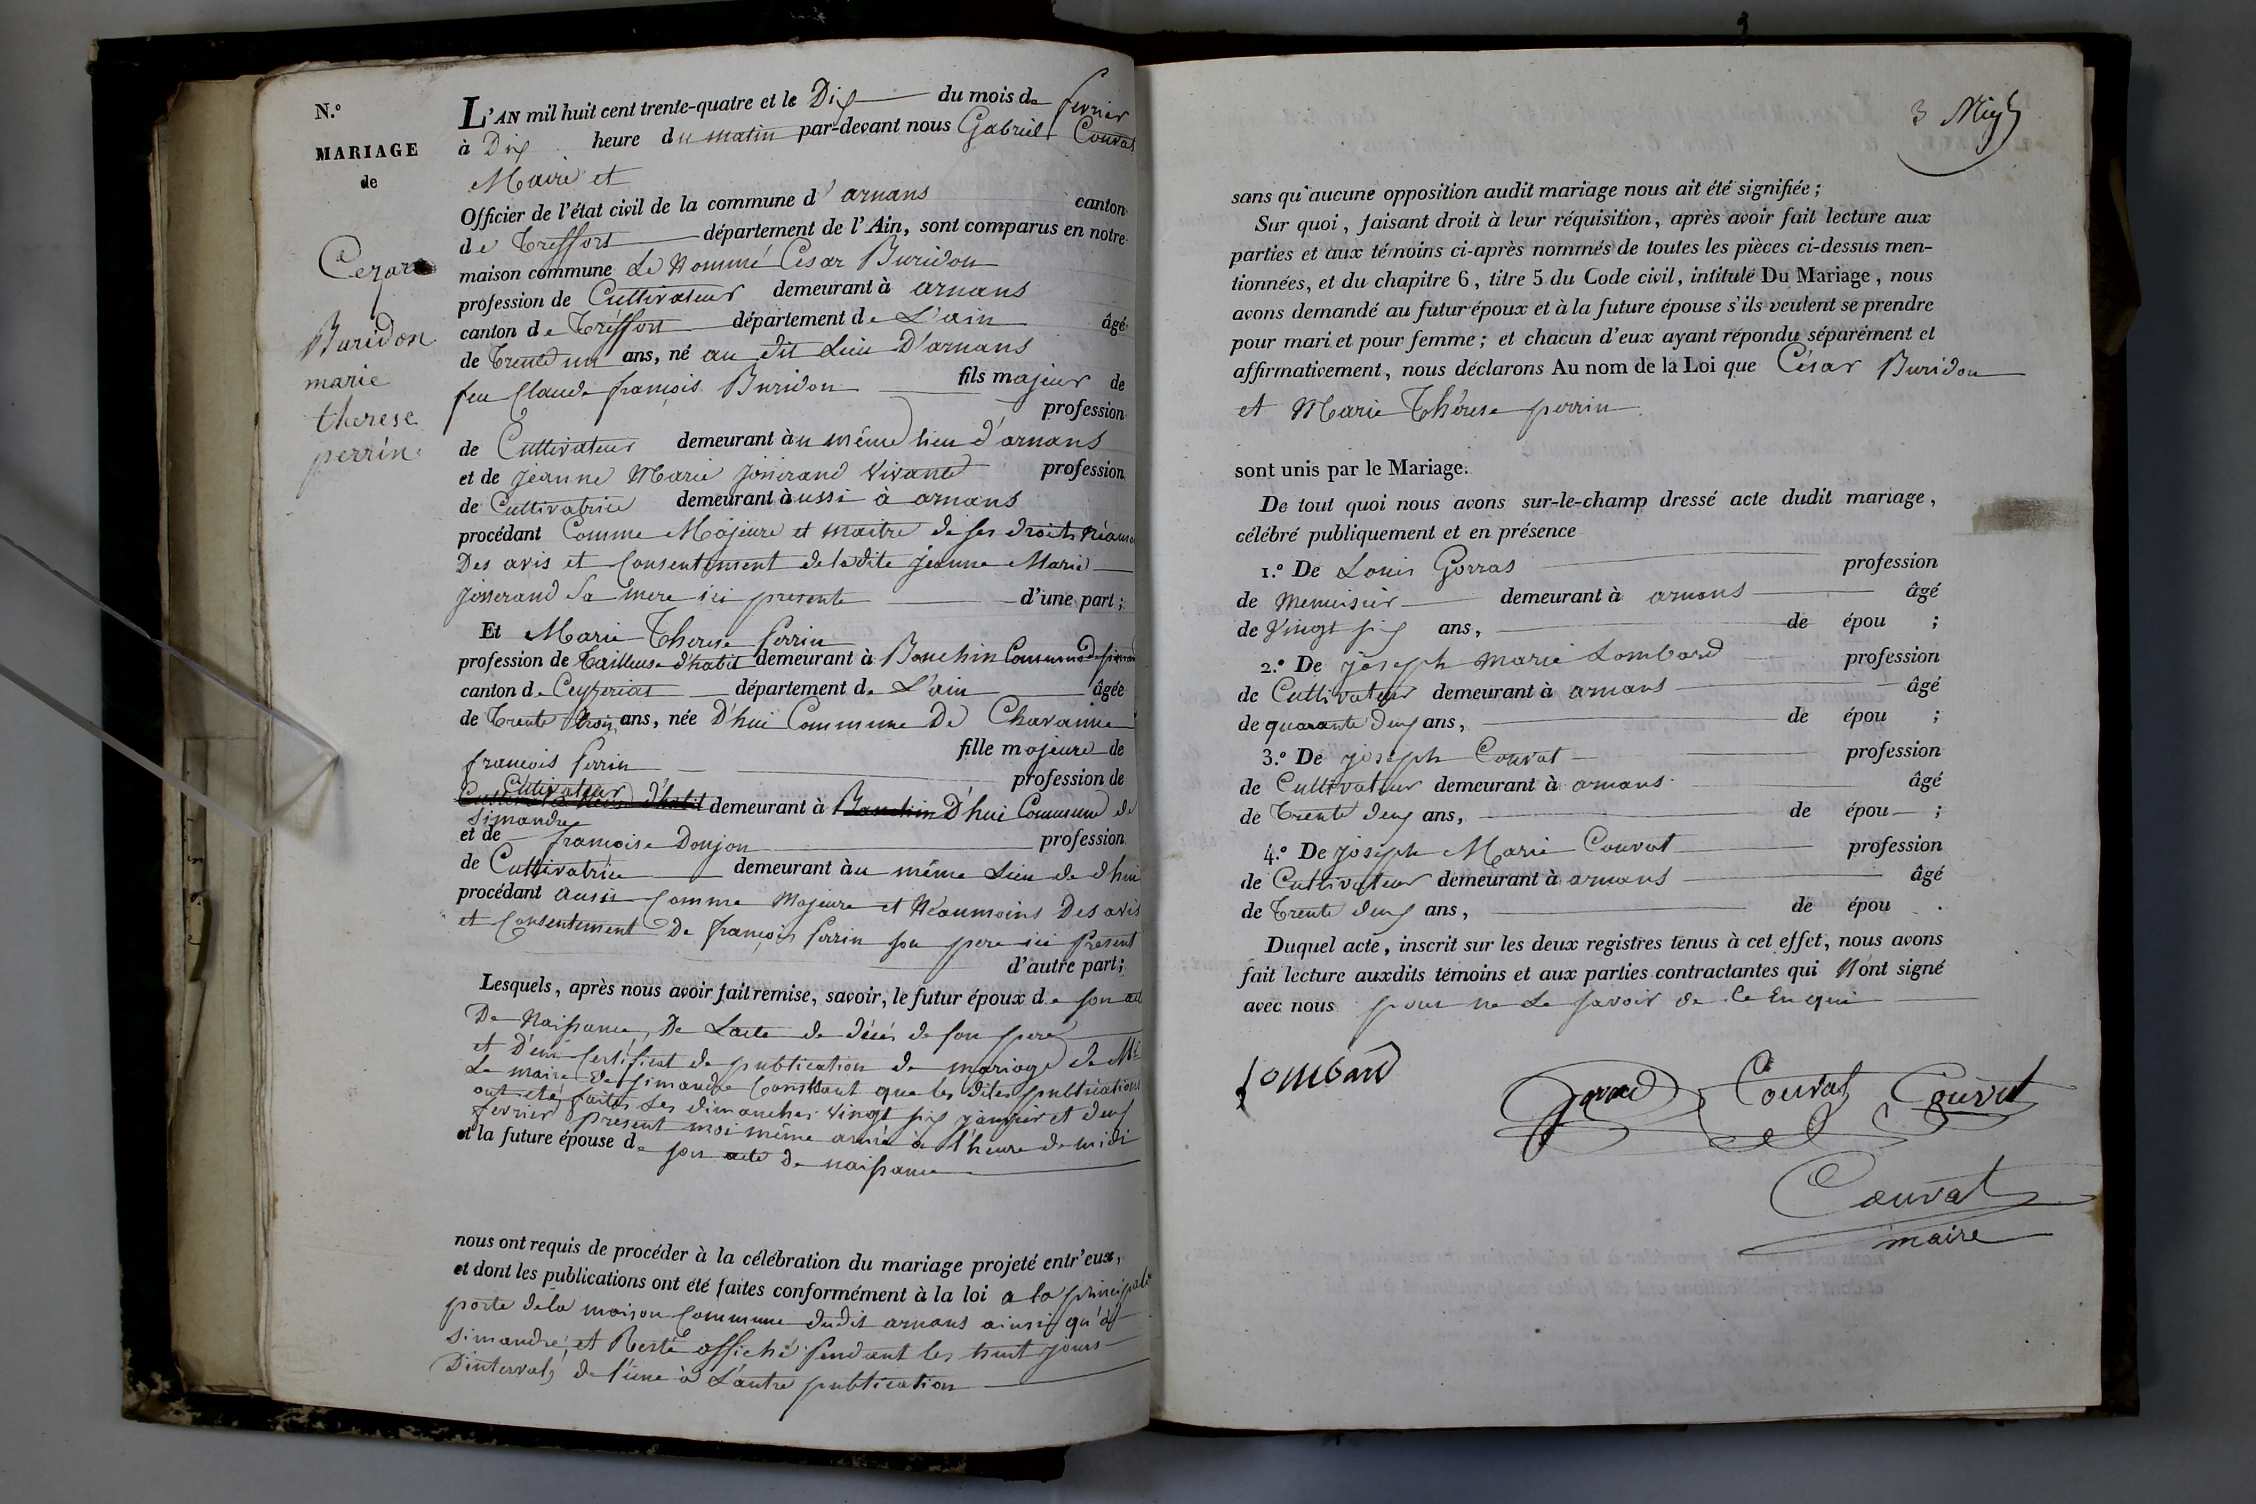 N.º
MARIAGE
de
Cezar
Buridon
marie
therese
perrin
L'AN mil huit cent trente-quatre et le Dix du mois de fevrier
à Dix heure du matin par-devant nous Gabriel Couvat
Maire et
Officier de l'état civil de la commune d'arnans canton
de Treffort département de l'Ain, sont comparus en notre
maison commune Le Nommé César Buridon
profession de Cultivateur demeurant à arnans
canton de Treffort département de L'ain âgé
de Trente un ans, né au dit Lieu D'arnans
fils majeur de
feu Claude françois Buridon profession
de Cultivateur demeurant àu même lieu d'arnans
et de jeanne Marie josserand Vivante profession
de Cultivatrice demeurant àussi à arnans
procédant Comme Majeure et maitre de ses droits
Des avis et Consentement de ladite jeanne Marie
josserand Sa mere ici presente d'une part;
Et Marie Therese Perrin
profession de Tailleuse d'habit demeurant à Bouchin Commune de
canton de Ceyzeriat département de L'ain âgée
de Trente trois ans, née D'hui Commune De Chavanne
fille majeure de
françois Perrin profession de
Cultivateur demeurant à D'hui Commune de
Simandre
et de françoise Donjon profession
de Cultivatrice demeurant àu même Lieu de d'hui
procédant aussi Comme Majeure et Néaumoins Des avis
et Consentement De françois Perrin son pere ici Présent
d'autre part;
Lesquels, après nous avoir fait remise, savoir, le futur époux de son acte
De Naissance, De Lacte de décès de son pere
et D'un Certificat de publication de mariage de Mr
Le maire de Simandre Constant que les dites publications
ont été faites Les dimanches vingt six janvier et deux
fevrier present moi même année à l'heure de midi
et la future épouse de son acte de naissance
nous ont requis de procéder à la célébration du mariage projeté entr'eux,
et dont les publications ont été faites conformément à la loi a la principale
porte dela maison Commune dudit arnans ainsi qu'à
Simandre, et Resté affiché Pendant les huit jours
D'interval, de l'une à L'autre publication
3
sans qu'aucune opposition audit mariage nous ait été signifiée;
Sur quoi, faisant droit à leur réquisition, après avoir fait lecture aux
parties et aux témoins ci-après nommés de toutes les pièces ci-dessus men-
tionnées, et du chapitre 6, titre 5 du Code civil, intitulé Du Mariage, nous
avons demandé au futur époux et à la future épouse s'ils veulent se prendre
pour mari et pour femme; et chacun d'eux ayant répondu séparément et
affirmativement, nous déclarons Au nom de la Loi que César Buridon
et Marie Thérese perrin
sont unis par le Mariage.
De tout quoi nous avons sur-le-champ dressé acte dudit mariage,
célébré publiquement et en présence
1.º De Louis Gorras profession
de Menuisier demeurant à arnans âgé
de Vingt six ans, de épou ;
2.º De joseph marie Lombard profession
de Cultivateur demeurant à arnans âgé
de quarante deux ans, de épou ;
3.º De joseph Couvat profession
de Cultivateur demeurant à arnans âgé
de Trente deux ans, de épou ;
4.º De joseph Marie Couvat profession
de Cultivateur demeurant à arnans âgé
de Trente deux ans, de épou .
Duquel acte, inscrit sur les deux registres tenus à cet effet, nous avons
fait lecture auxdits témoins et aux parties contractantes qui N'ont signé
avec nous pour ne Le savoir de Ce Enquis
Lombard
Couvat Couvat
Couvat
maire